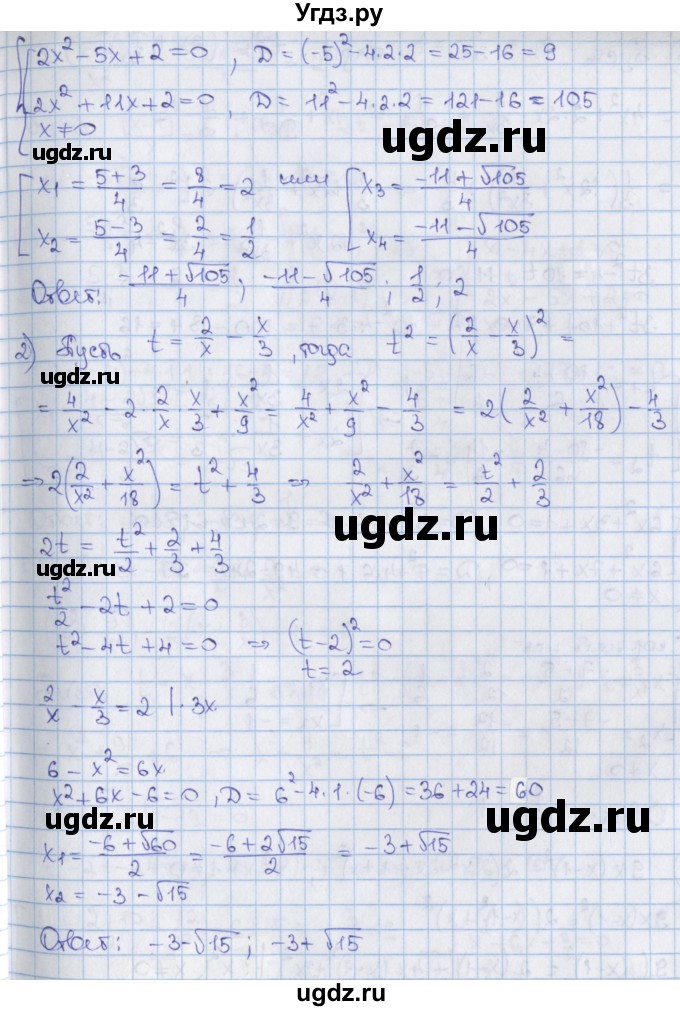 Угдз.ру
2x² - 5x + 2 = 0 , D = (-5)² - 4·2·2 = 25 - 16 = 9
2x² + 11x + 2 = 0 , D = 11² - 4·2·2 = 121 - 16 = 105
x ≠ 0
ugdz.ru
ugdz.ru
x₁ = (5+3)/4 = 8/4 = 2 или x₃ = (-11+√105)/4
x₂ = (5-3)/4 = 2/4 = 1/2 x₄ = (-11-√105)/4
ugdz.ru
Ответ: (-11+√105)/4 ; (-11-√105)/4 ; 1/2 ; 2
2) Пусть t = 2/x - x/3 , тогда t² = (2/x - x/3)² =
ugdz.ru
ugdz.ru
= 4/x² - 2·2/x·x/3 + x²/9 = 4/x² + x²/9 - 4/3 = 2(2/x² + x²/18) - 4/3
⇒ 2(2/x² + x²/18) = t² + 4/3 ⇒ 2/x² + x²/18 = t²/2 + 2/3
ugdz.ru
2t = t²/2 + 2/3 + 4/3
ugdz.ru
t²/2 - 2t + 2 = 0
t² - 4t + 4 = 0 ⇒ (t-2)² = 0
t = 2
2/x - x/3 = 2 |·3x
ugdz.ru
6 - x² = 6x
x² + 6x - 6 = 0 , D = 6² - 4·1·(-6) = 36 + 24 = 60
ugdz.ru
x₁ = (-6+√60)/2 = (-6+2√15)/2 = -3+√15
x₂ = -3-√15
Ответ: -3-√15 ; -3+√15
ugdz.ru
ugdz.ru